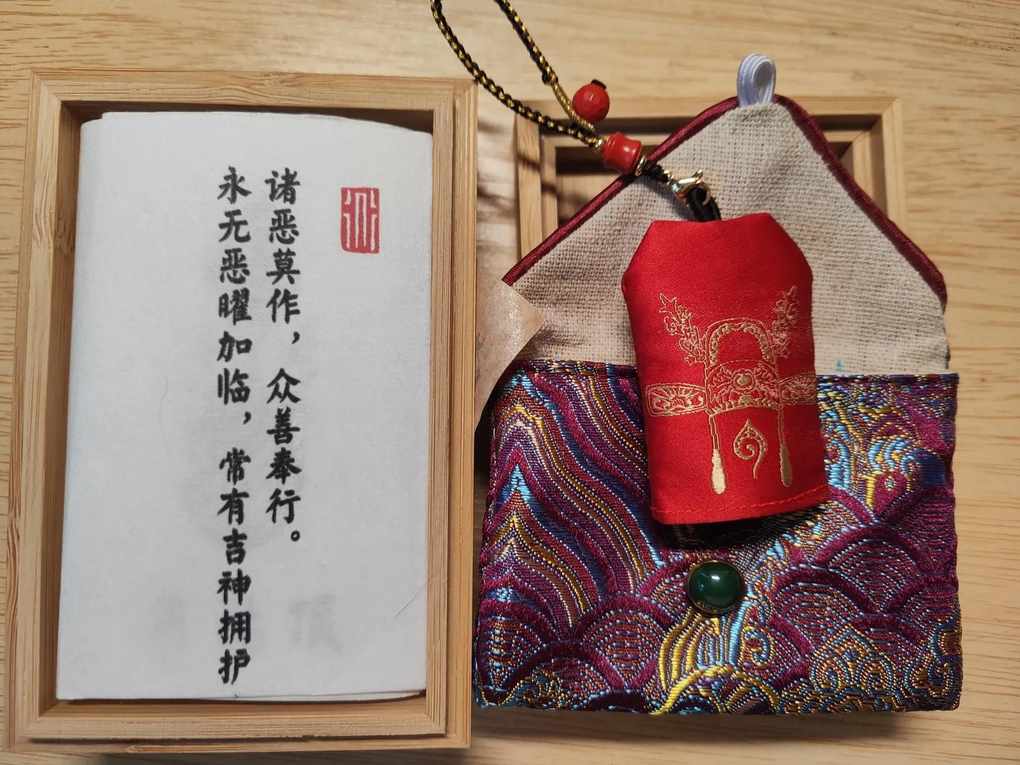 诸恶莫作，众善奉行。
永无恶曜加临，常有吉神拥护